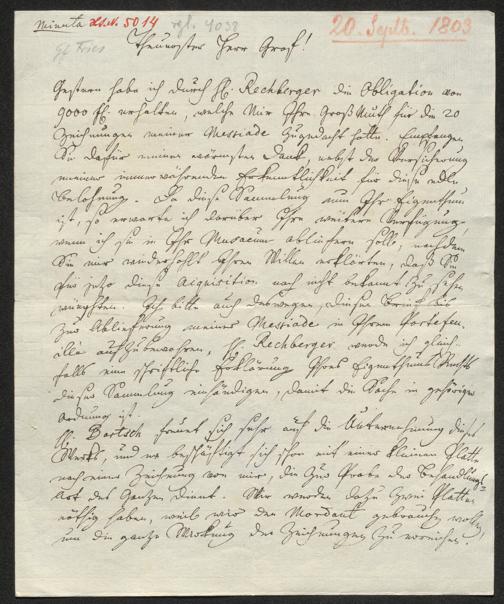 Minuta LS.N. 5014 vgl. 4038 20. Septb. 1803
Gf Fries
Theuerster Herr Graf!
Gestern habe ich durch H. Rechberger die Obligation von
9000 fl. erhalten, welche mir Ihre Großmuth für die 20
Zeichnungen meiner Messiade zugedacht hatte. Empfangen
Sie dafür meinen wärmsten Dank, nebst der Versicherung
meiner immerwährenden Erkentlichkeit für diese edle
Belohnung. Da diese Sammlung nun Ihr Eigenthum
ist, so erwarte ich darüber Ihre weitere Verfügung,
wenn ich sie in Ihr Musaeum abliefern soll, nachdem
Sie mir wiederholt Ihren Willen erklärten, daß Sie
für jetzo diese Acquisition noch nicht bekannt zu sehen
wünschten. Ich bitte auch deswegen, diesen Brief bis
zur Ablieferung meiner Messiade in Ihrem Portefeu-
ille aufzubewahren, H. Rechberger werde ich gleich-
falls eine schriftliche Erklärung Ihres Eigenthums Rechts
dieser Sammlung einhändigen, damit die Sache in gehöriger
Ordnung ist.
H. Bartsch freuet sich sehr auf die Unternehmung dieses
Werks, und er beschäftigt sich schon mit einer kleinen Platte
nach einer Zeichnung von mir, die zur Probe der Behandlungs-
Art des Ganzen dient. Wir werden dazu zwei Platten
nöthig haben, weil wir den Mordant gebrauchen wollen,
um die ganze Wirkung der Zeichnungen zu erreichen.